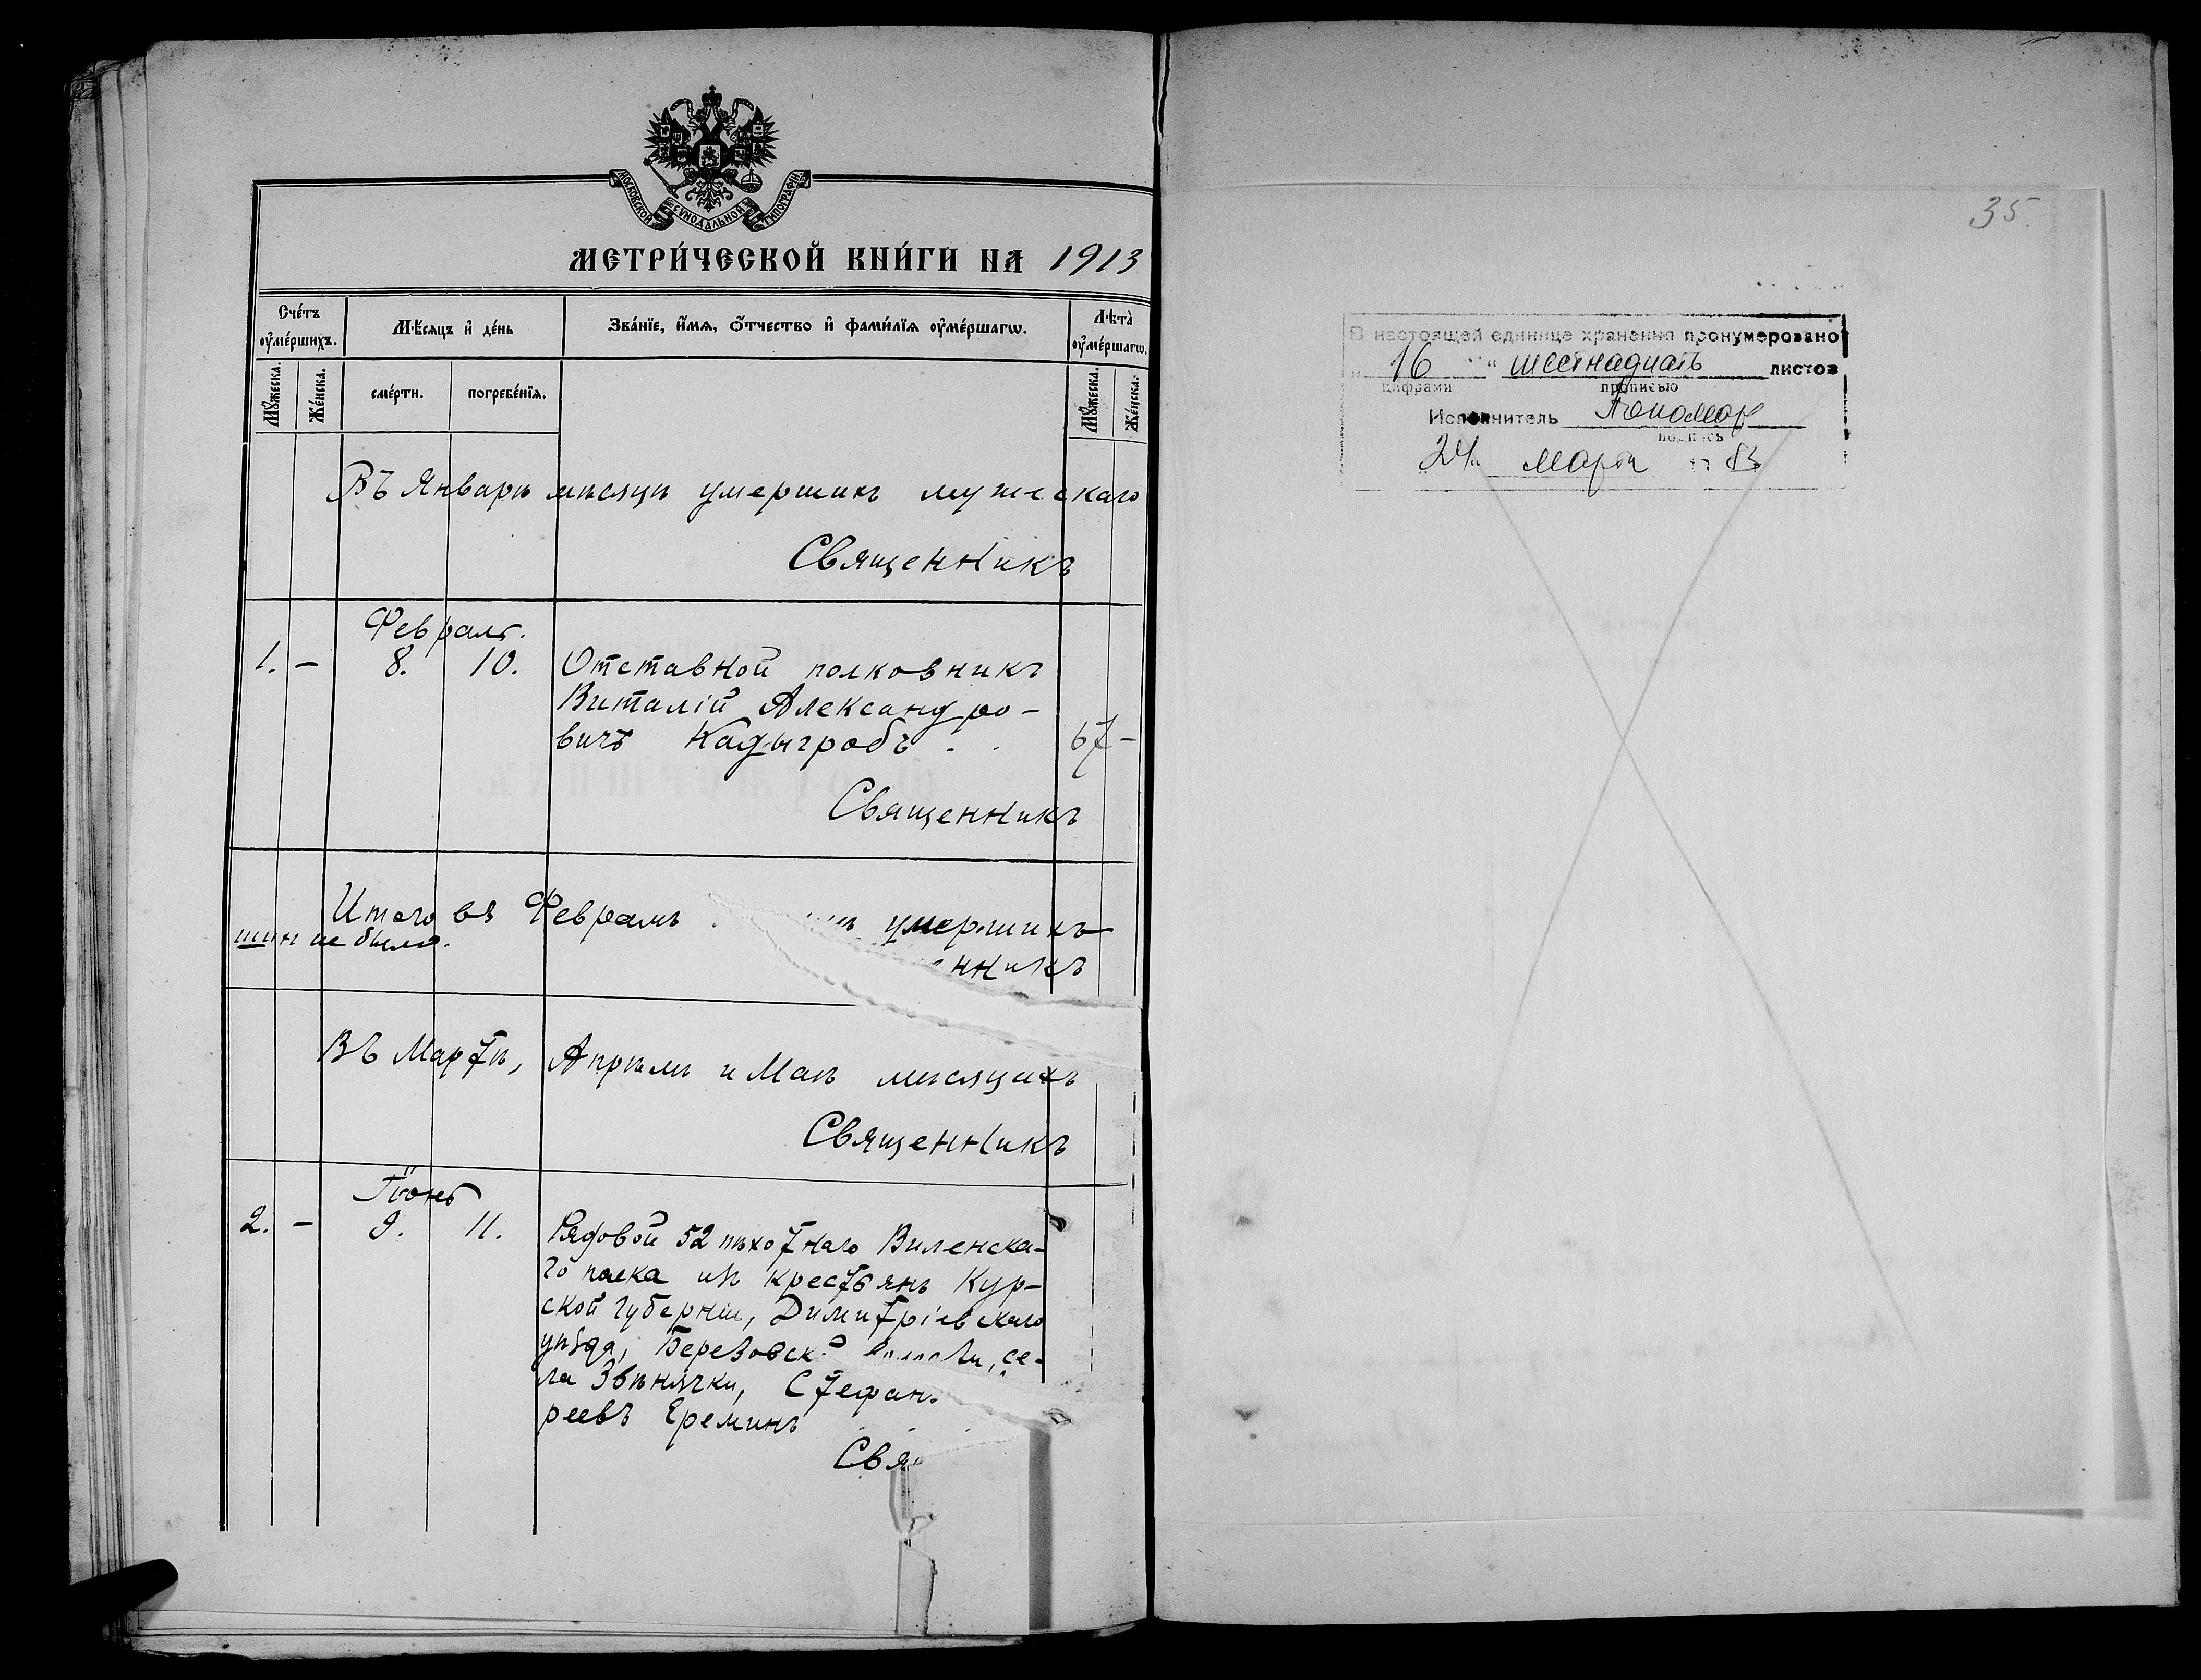 МОСКОВСКОЙ СѴНОДАЛЬНОЙ ТИПОГРАФІИ
МЕТРИ́ЧЕСКОЙ КНИ́ГИ НА 1913
Сче́тъ оу҆ме́ршихъ.
Мѣ́сяцъ и҆ де́нь
Зва́нїе, и҆́мя, ѻ҆́тчество и҆ фами́лїя оу҆ме́ршагѡ.
Лѣта̀ оу҆ме́ршагѡ.
Мꙋ́жеска.
Же́нска.
сме́рти.
погребе́нїя.
Мꙋ́жеска.
Же́нска.
Въ Январѣ мѣсяцѣ умершихъ мужескаго
Священникъ
Февраль.
1. – 8. 10. Отставной полковникъ
Виталій Александро-
вичъ Кадыгробъ . . 67 –
Священникъ
Итого въ Февралѣ умершихъ
щинъ не было.
нникъ
Въ Мартѣ, Апрѣлѣ и Маѣ мѣсяцахъ
Священникъ
Іюнь
2. – 9. 11. Рядовой 52 пѣхотнаго Виленска-
го полка изъ крестьянъ Кур-
ской губерніи, Димитріевскаго
уѣзда, Березовск волости, се-
ла Звѣнячки, Стефан
реевъ Ереминъ
Свя
35.
В настоящей единице хранения пронумеровано
16 " шестнадцать листов
цифрами прописью
Исполнитель Пономар
подпись
24 " марта 83